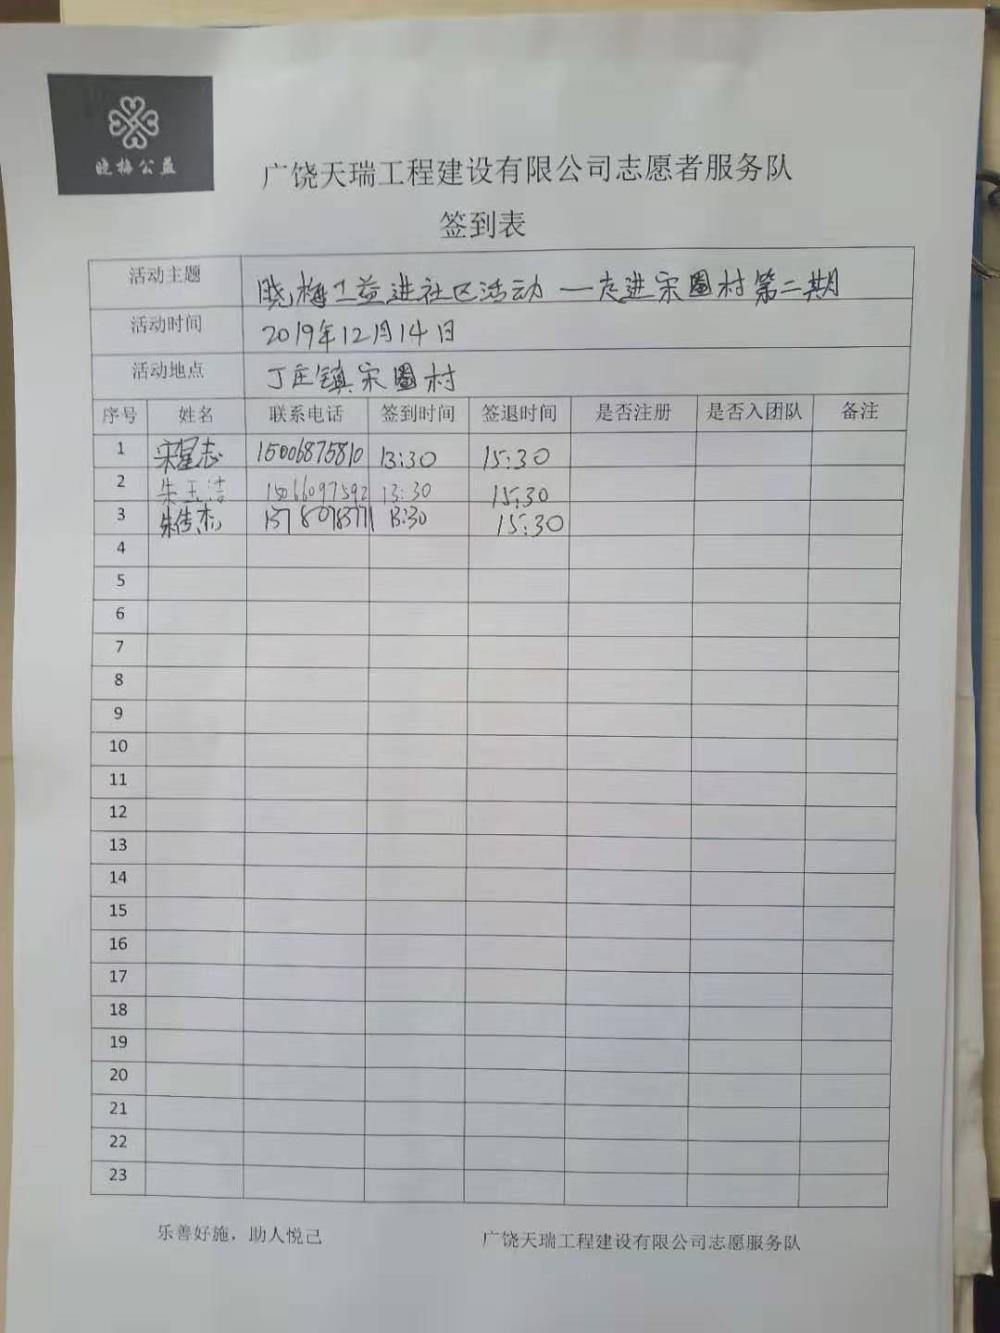 晓梅公益
广饶天瑞工程建设有限公司志愿者服务队
签到表
活动主题 晓梅公益进社区活动—走进宋圈村第二期
活动时间 2019年12月14日
活动地点 丁庄镇宋圈村
序号 姓名 联系电话 签到时间 签退时间 是否注册 是否入团队 备注
1 宋星志 15006875810 13:30 15:30
2 朱玉洁 15066097592 13:30 15:30
3 朱传杰 13:30 15:30
4
5
6
7
8
9
10
11
12
13
14
15
16
17
18
19
20
21
22
23
乐善好施，助人悦己 广饶天瑞工程建设有限公司志愿服务队